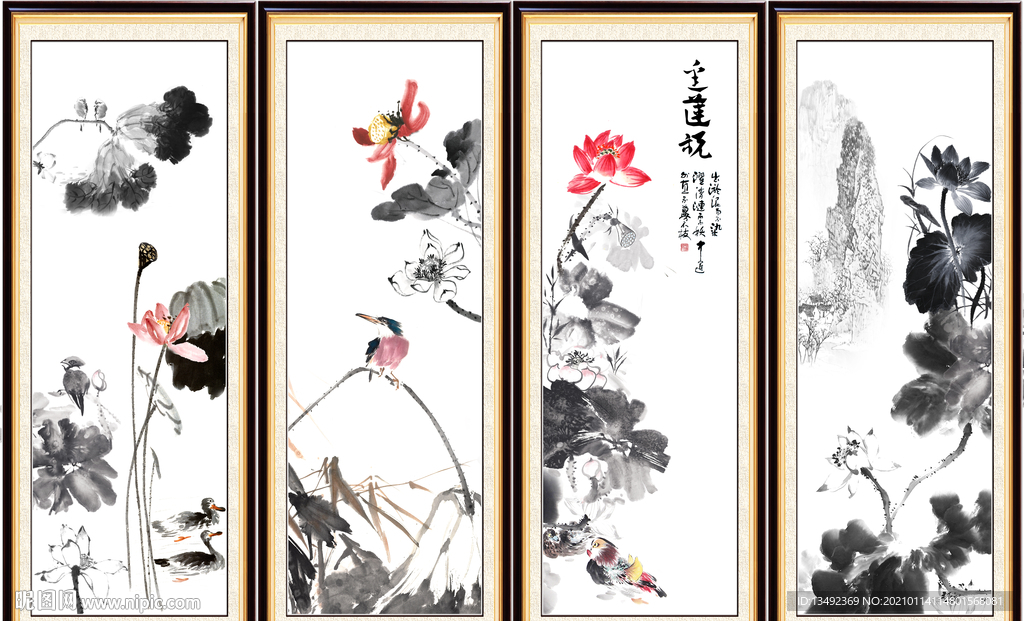 愛蓮説
出淤泥而不染
濯清漣而不妖中通
外直不蔓不枝
昵图网 www.nipic.com
ID:13492369 NO:20210114114601568081